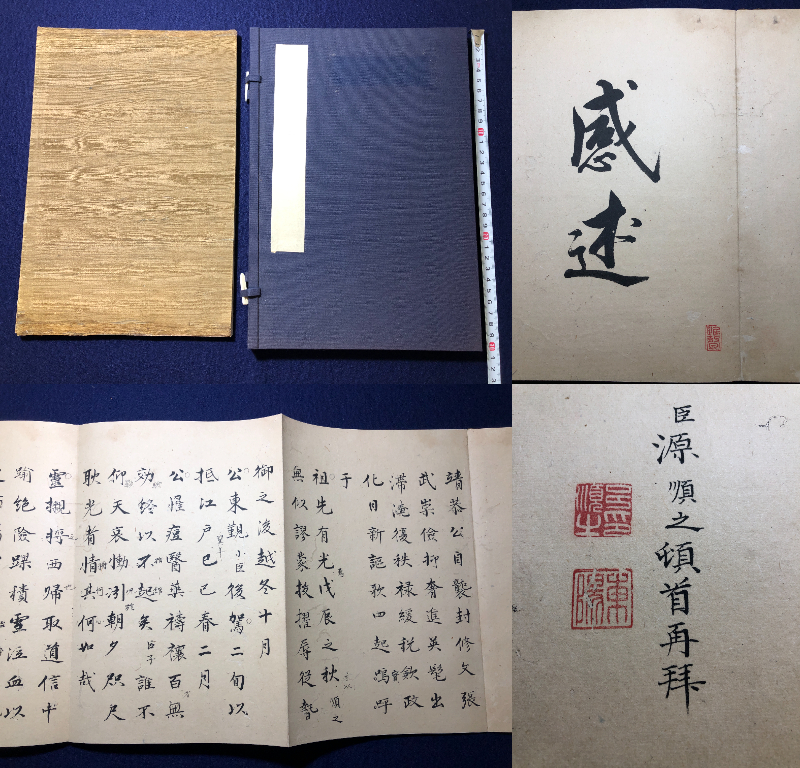 感
述
靖恭公自襲封修文張
武崇儉抑奢進英髦出
滯淹復秩禄緩税斂政
化日新謳歌四起嗚呼
于
祖先有光戊辰之秋順之
無似謬蒙抜擢辱從暬
御之後越冬十月
公東覲小臣後駕二旬以
抵江戸己巳春二月
公罹痘醫藥禱禳百無
効終以不起矣臣子誰不
仰天哀慟況朝夕咫尺
耿光者情其何如哉
靈櫬将西帰取道信中
踰絶險踝積雪泣血以
臣源順之頓首再拜